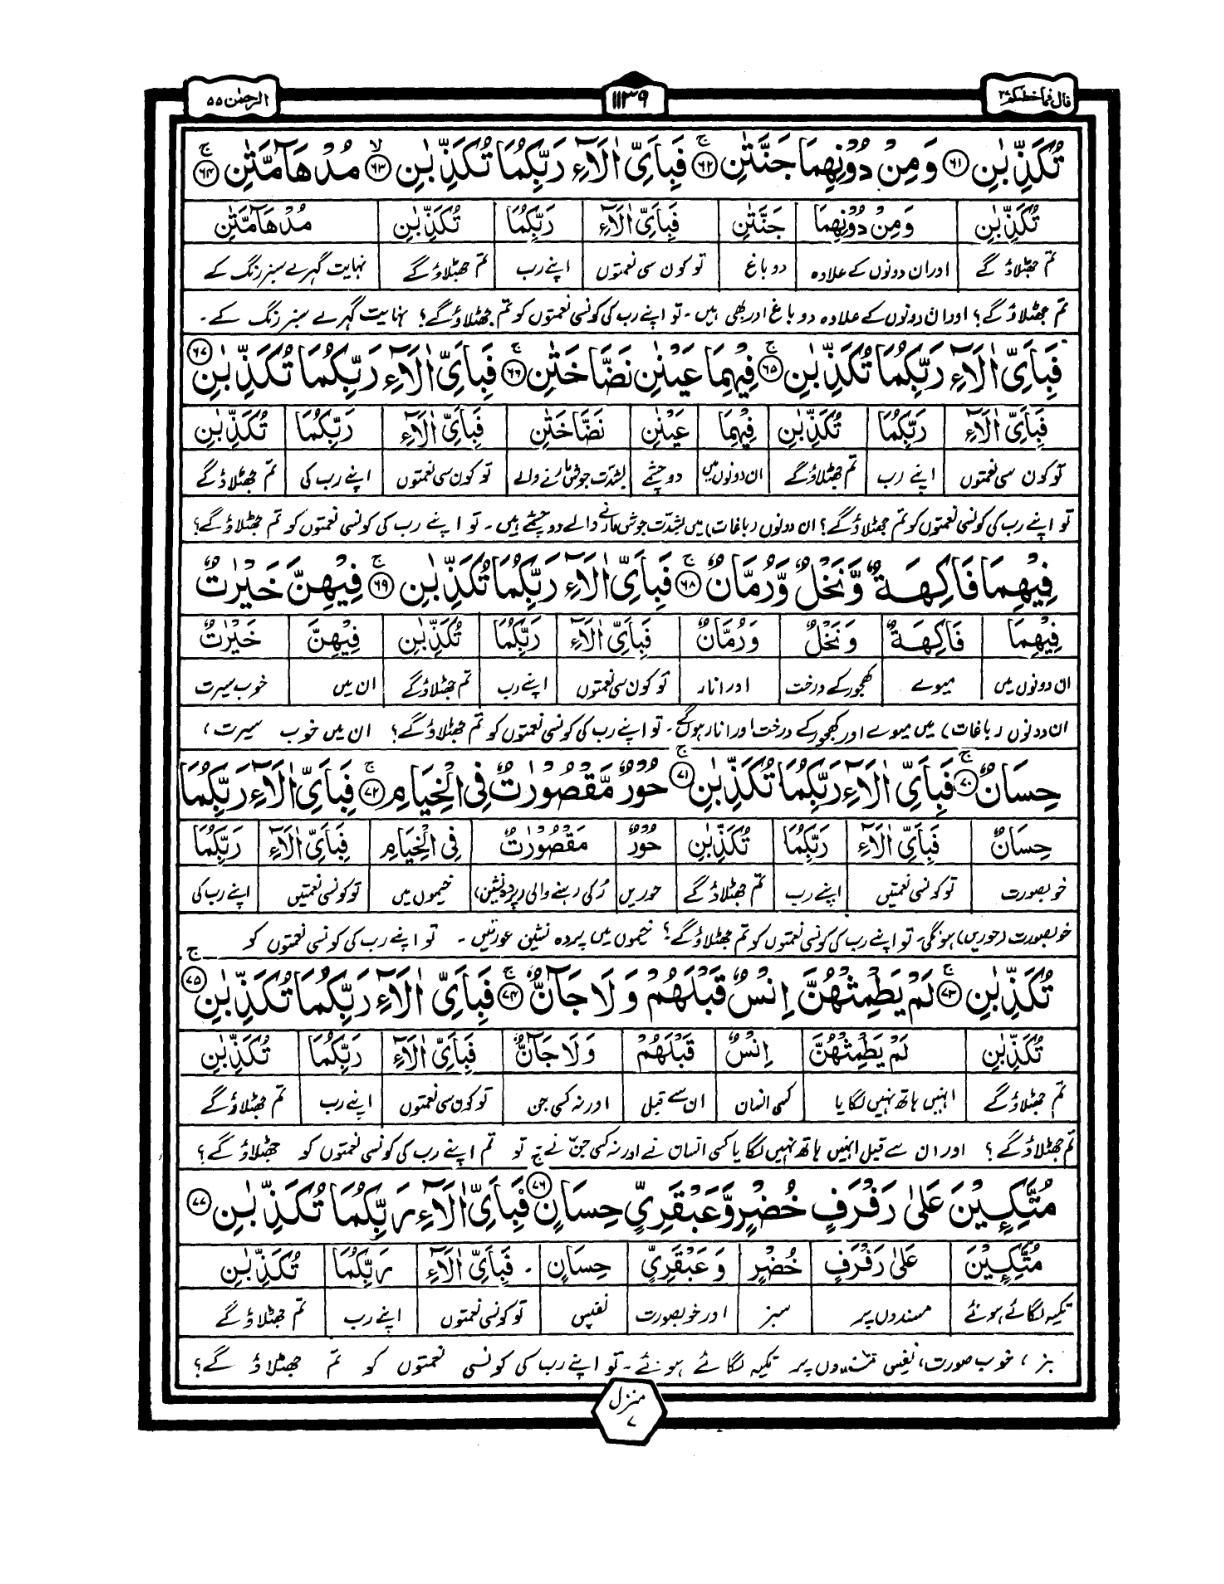 قال فما خطبكم ٢٧
١١٣٩
الرحمٰن ٥٥
تُكَذِّبٰنِ ﴿٦١﴾ وَمِنْ دُوْنِهِمَا جَنَّتٰنِ ﴿٦٢﴾ۚ فَبِاَيِّ اٰلَآءِ رَبِّكُمَا تُكَذِّبٰنِ ﴿٦٣﴾ۙ مُدْهَآمَّتٰنِ ﴿٦٤﴾ۚ
تُكَذِّبٰنِ وَمِنْ دُوْنِهِمَا جَنَّتٰنِ فَبِاَيِّ اٰلَآءِ رَبِّكُمَا تُكَذِّبٰنِ مُدْهَآمَّتٰنِ
تم جھٹلاؤ گے اور ان دونوں کے علاوہ دو باغ تو کون سی نعمتوں اپنے رب تم جھٹلاؤ گے نہایت گہرے سبز رنگ کے
تم جھٹلاؤ گے؟ اور ان دونوں کے علاوہ دو باغ اور بھی ہیں۔ تو اپنے رب کی کونسی نعمتوں کو تم جھٹلاؤ گے؟ نہایت گہرے سبز رنگ کے۔
فَبِاَيِّ اٰلَآءِ رَبِّكُمَا تُكَذِّبٰنِ ﴿٦٥﴾ۚ فِيْهِمَا عَيْنٰنِ نَضَّاخَتٰنِ ﴿٦٦﴾ۚ فَبِاَيِّ اٰلَآءِ رَبِّكُمَا تُكَذِّبٰنِ ﴿٦٧﴾
فَبِاَيِّ اٰلَآءِ رَبِّكُمَا تُكَذِّبٰنِ فِيْهِمَا عَيْنٰنِ نَضَّاخَتٰنِ فَبِاَيِّ اٰلَآءِ رَبِّكُمَا تُكَذِّبٰنِ
تو کون سی نعمتوں اپنے رب تم جھٹلاؤ گے ان دونوں میں دو چشمے بشدت جوش مارنے والے تو کون سی نعمتوں اپنے رب کی تم جھٹلاؤ گے
تو اپنے رب کی کونسی نعمتوں کو تم جھٹلاؤ گے؟ ان دونوں (باغات) میں بشدت جوش مارنے والے دو چشمے ہیں۔ تو اپنے رب کی کونسی نعمتوں کو تم جھٹلاؤ گے؟
فِيْهِمَا فَاكِهَةٌ وَّنَخْلٌ وَّرُمَّانٌ ﴿٦٨﴾ۚ فَبِاَيِّ اٰلَآءِ رَبِّكُمَا تُكَذِّبٰنِ ﴿٦٩﴾ۚ فِيْهِنَّ خَيْرٰتٌ
فِيْهِمَا فَاكِهَةٌ وَنَخْلٌ وَرُمَّانٌ فَبِاَيِّ اٰلَآءِ رَبِّكُمَا تُكَذِّبٰنِ فِيْهِنَّ خَيْرٰتٌ
ان دونوں میں میوے کھجور کے درخت اور انار تو کون سی نعمتوں اپنے رب تم جھٹلاؤ گے ان میں خوب سیرت
ان دونوں (باغات) میں میوے اور کھجور کے درخت اور انار ہونگے۔ تو اپنے رب کی کونسی نعمتوں کو تم جھٹلاؤ گے؟ ان میں خوب سیرت،
حِسَانٌ ﴿٧٠﴾ۚ فَبِاَيِّ اٰلَآءِ رَبِّكُمَا تُكَذِّبٰنِ ﴿٧١﴾ۚ حُوْرٌ مَّقْصُوْرٰتٌ فِي الْخِيَامِ ﴿٧٢﴾ۚ فَبِاَيِّ اٰلَآءِ رَبِّكُمَا
حِسَانٌ فَبِاَيِّ اٰلَآءِ رَبِّكُمَا تُكَذِّبٰنِ حُوْرٌ مَقْصُوْرٰتٌ فِي الْخِيَامِ فَبِاَيِّ اٰلَآءِ رَبِّكُمَا
خوبصورت تو کونسی نعمتیں اپنے رب تم جھٹلاؤ گے حوریں رُکی رہنے والی (پردہ نشین) خیموں میں تو کونسی نعمتیں اپنے رب کی
خوبصورت (حوریں) ہونگی۔ تو اپنے رب کی کونسی نعمتوں کو تم جھٹلاؤ گے؟ خیموں میں پردہ نشین عورتیں۔ تو اپنے رب کی کونسی نعمتوں کو
تُكَذِّبٰنِ ﴿٧٣﴾ۚ لَمْ يَطْمِثْهُنَّ اِنْسٌ قَبْلَهُمْ وَلَا جَآنٌّ ﴿٧٤﴾ۚ فَبِاَيِّ اٰلَآءِ رَبِّكُمَا تُكَذِّبٰنِ ﴿٧٥﴾ۚ
تُكَذِّبٰنِ لَمْ يَطْمِثْهُنَّ اِنْسٌ قَبْلَهُمْ وَلَا جَآنٌّ فَبِاَيِّ اٰلَآءِ رَبِّكُمَا تُكَذِّبٰنِ
تم جھٹلاؤ گے انہیں ہاتھ نہیں لگایا کسی انسان ان سے قبل اور نہ کسی جن تو کون سی نعمتوں اپنے رب تم جھٹلاؤ گے
تم جھٹلاؤ گے؟ اور ان سے قبل انہیں ہاتھ نہیں لگایا کسی انسان نے اور نہ کسی جن نے تو تم اپنے رب کی کونسی نعمتوں کو جھٹلاؤ گے؟
مُتَّكِـِٕيْنَ عَلٰى رَفْرَفٍ خُضْرٍ وَّعَبْقَرِيٍّ حِسَانٍ ﴿٧٦﴾ فَبِاَيِّ اٰلَآءِ رَبِّكُمَا تُكَذِّبٰنِ ﴿٧٧﴾
مُتَّكِـِٕيْنَ عَلٰى رَفْرَفٍ خُضْرٍ وَعَبْقَرِيٍّ حِسَانٍ فَبِاَيِّ اٰلَآءِ رَبِّكُمَا تُكَذِّبٰنِ
تکیہ لگائے ہوئے مسندوں پر سبز اور خوبصورت نفیس تو کونسی نعمتوں اپنے رب تم جھٹلاؤ گے
سبز، خوب صورت، نفیس مسندوں پر تکیہ لگائے ہوئے۔ تو اپنے رب کی کونسی نعمتوں کو تم جھٹلاؤ گے؟
منزل
٧